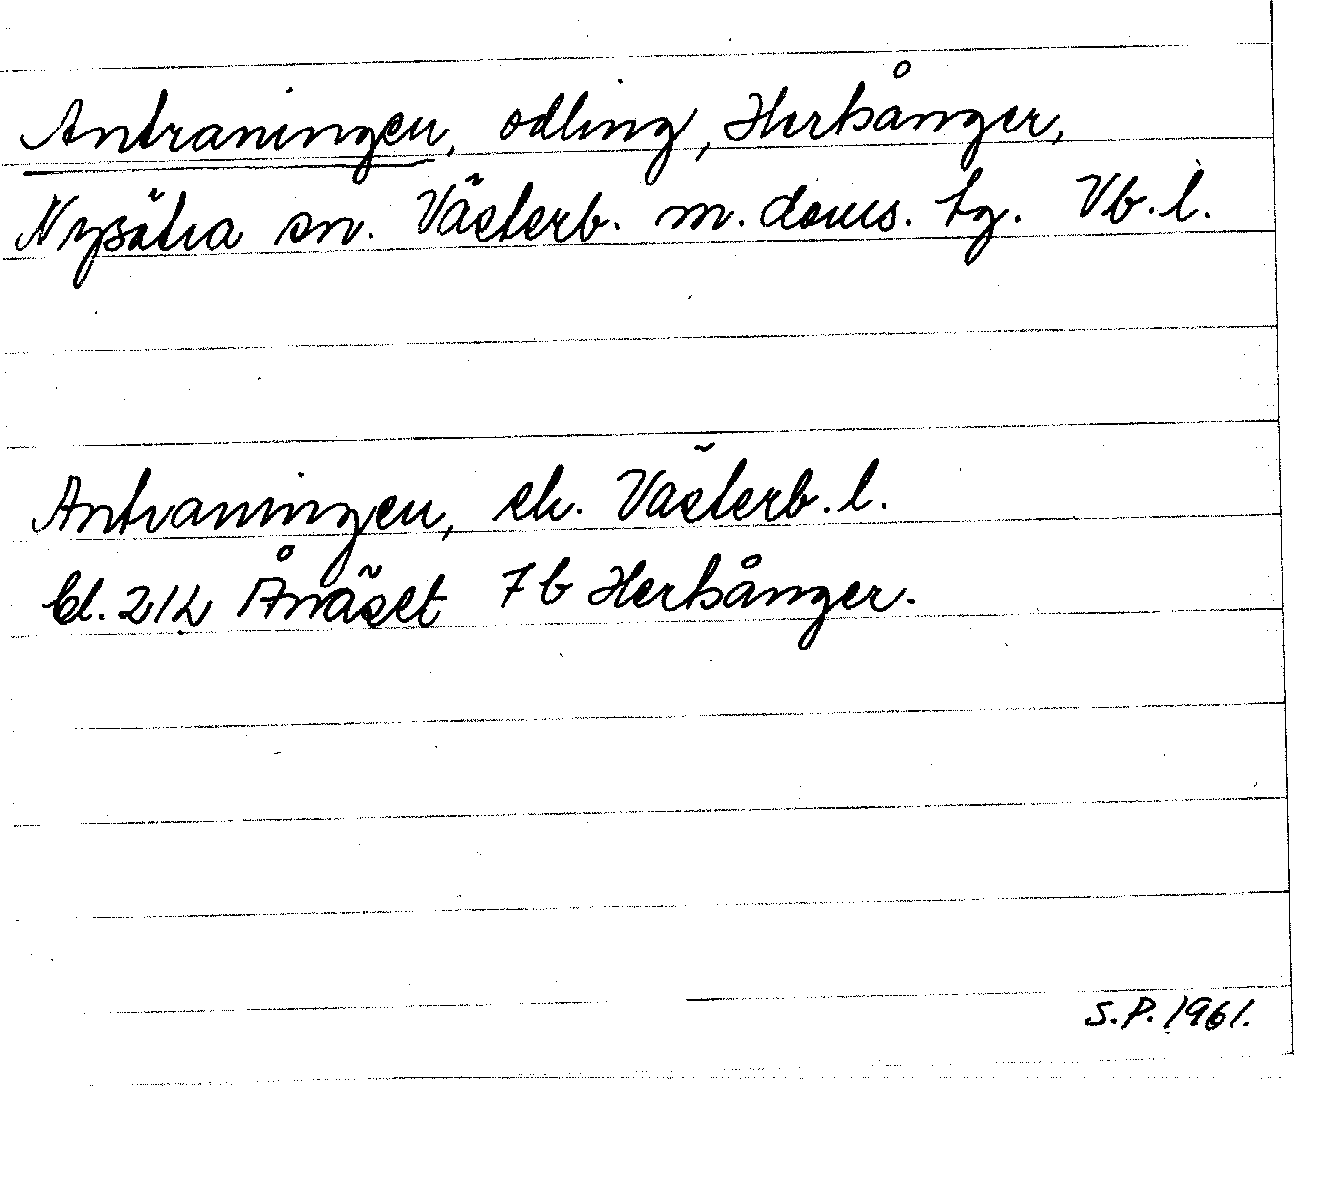 Antraningen, odling, Herkånger,
Nysätra sn. Västerb. m. doms. tg. Vb. l.
Antraningen, ek. Västerb. l.
bl. 212 Ånäset 7 b Herkånger.
S.P. 1961.